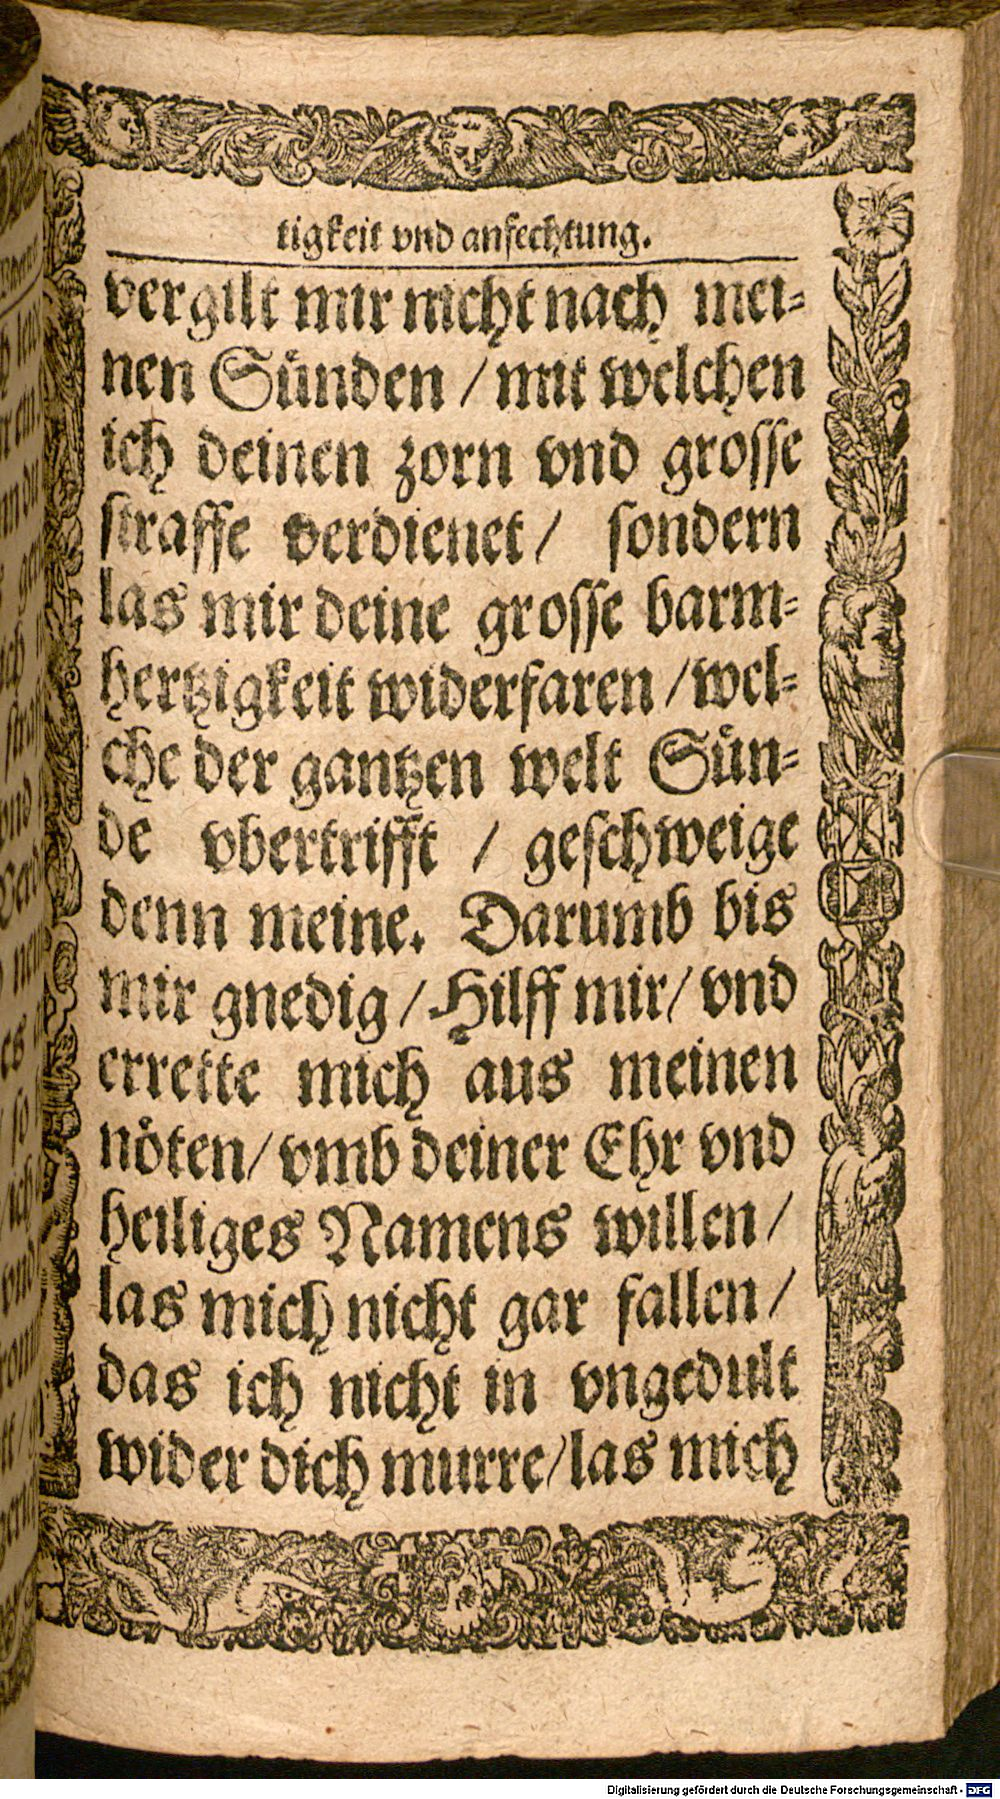 tigkeit vnd anfechtung.
vergilt mir nicht nach mei⸗
nen Suͤnden / mit welchen
ich deinen zorn vnd grosse
straffe verdienet / sondern
las mir deine grosse barm⸗
hertzigkeit widerfaren / wel⸗
che der gantzen welt Suͤn⸗
de vbertrifft / geschweige
denn meine. Darumb bis
mir gnedig / Hilff mir / vnd
errette mich aus meinen
noͤten / vmb deiner Ehr vnd
heiliges Namens willen /
las mich nicht gar fallen /
das ich nicht in vngedult
wider dich murre / las mich
Digitalisierung gefördert durch die Deutsche Forschungsgemeinschaft - DFG